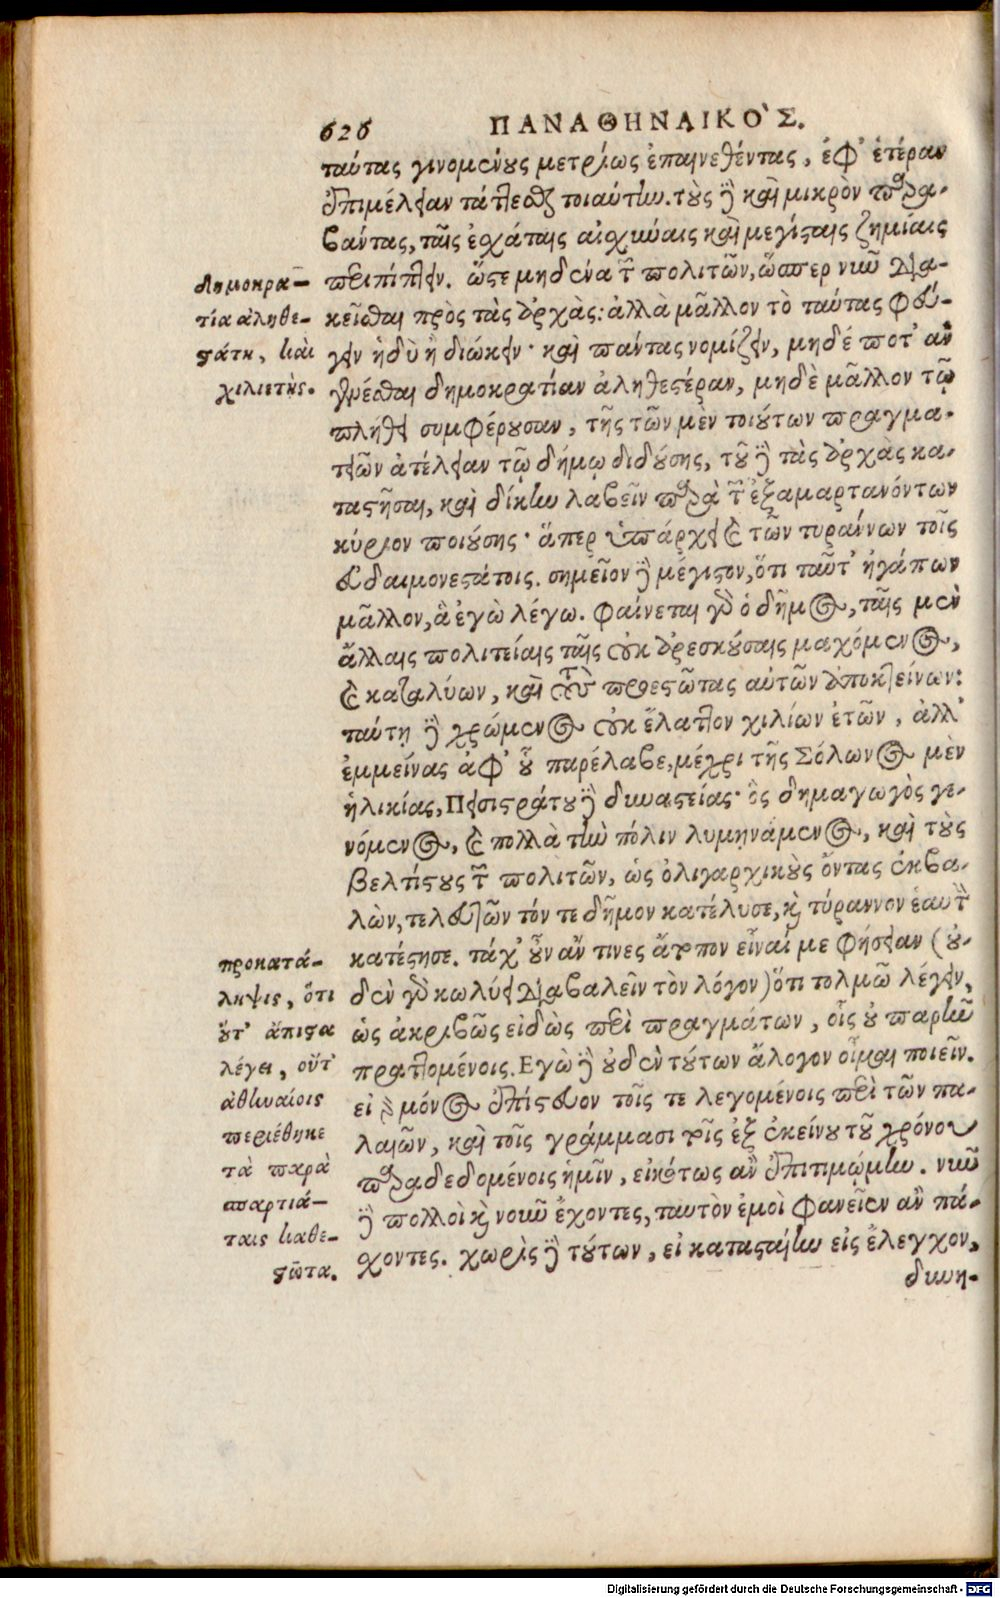 626 ΠΑΝΑΘΗΝΑΙΚΟ'Σ.
ταύτας γινομένους μετρίως ἐπαινεθέντας, ἐφ' ἑτέραν
ἐπιμέλειαν τάττεσθαι τοιαύτην. τοὺς δὲ καὶ μικρὸν παρα-
βάντας, ταῖς ἐσχάταις αἰσχύναις καὶ μεγίσταις ζημίαις
περιπίπτειν. ὥστε μηδένα τῶν πολιτῶν, ὥσπερ νῦν δια-
κεῖσθαι πρὸς τὰς ἀρχὰς: ἀλλὰ μᾶλλον τὸ ταύτας φεύ-
γειν ἡδὺ ἢ διώκειν· καὶ πάντας νομίζειν, μηδέ ποτ' ἂν
γενέσθαι δημοκρατίαν ἀληθεστέραν, μηδὲ μᾶλλον τῷ
πλήθει συμφέρουσαν, τῆς τῶν μὲν τοιούτων πραγμα-
τειῶν ἀτέλειαν τῷ δήμῳ διδούσης, τοῦ δὲ τὰς ἀρχὰς κα-
ταστῆσαι, καὶ δίκην λαβεῖν παρὰ τῶν ἐξαμαρτανόντων
κύριον ποιούσης· ἅπερ ὑπάρχει καὶ τῶν τυράννων τοῖς
εὐδαιμονεστάτοις. σημεῖον δὲ μέγιστον, ὅτι ταῦτ' ἠγάπων
μᾶλλον, ἃ ἐγὼ λέγω. φαίνεται γὰρ ὁ δῆμος, ταῖς μὲν
ἄλλαις πολιτείαις ταῖς οὐκ ἀρεσκούσαις μαχόμενος,
καὶ καταλύων, καὶ τοὺς προεστῶτας αὐτῶν ἀποκτείνων:
ταύτῃ δὲ χρώμενος οὐκ ἔλαττον χιλίων ἐτῶν, ἀλλ'
ἐμμείνας ἀφ' οὗ παρέλαβε, μέχρι τῆς Σόλωνος μὲν
ἡλικίας, Πεισιστράτου δὲ δυναστείας· ὃς δημαγωγὸς γε-
νόμενος, καὶ πολλὰ τὴν πόλιν λυμηνάμενος, καὶ τοὺς
βελτίστους τῶν πολιτῶν, ὡς ὀλιγαρχικοὺς ὄντας ἐκβα-
λὼν, τελευτῶν τόν τε δῆμον κατέλυσε, καὶ τύραννον ἑαυτὸν
κατέστησε. τάχ' οὖν ἄν τινες ἄτοπον εἶναί με φήσειαν (οὐ-
δὲν γὰρ κωλύει διαβαλεῖν τὸν λόγον) ὅτι τολμῶ λέγειν,
ὡς ἀκριβῶς εἰδὼς περὶ πραγμάτων, οἷς οὐ παρῆν
πραττομένοις. Εγὼ δὲ οὐδὲν τούτων ἄλογον οἶμαι ποιεῖν.
εἰ μὲν γὰρ μόνος ἐπίστευον τοῖς τε λεγομένοις περὶ τῶν πα-
λαιῶν, καὶ τοῖς γράμμασι τοῖς ἐξ ἐκείνου τοῦ χρόνου
παραδεδομένοις ἡμῖν, εἰκότως ἂν ἐπιτιμῴμην. νῦν
δὲ πολλοὶ καὶ νοῦν ἔχοντες, ταυτὸν ἐμοὶ φανεῖεν ἂν πά-
σχοντες. χωρὶς δὲ τούτων, εἰ κατασταίην εἰς ἔλεγχον,
δυνη-
δημοκρα-
τία ἀληθε-
στάτη, καὶ
χιλιετὴς.
προκατά-
ληψις, ὅτι
οὔτ' ἄπιστα
λέγει, οὔτ'
ἀθηναίοις
περιέθηκε
τὰ παρὰ
σπαρτιά-
ταις καθε-
στῶτα.
Digitalisierung gefördert durch die Deutsche Forschungsgemeinschaft - DFG